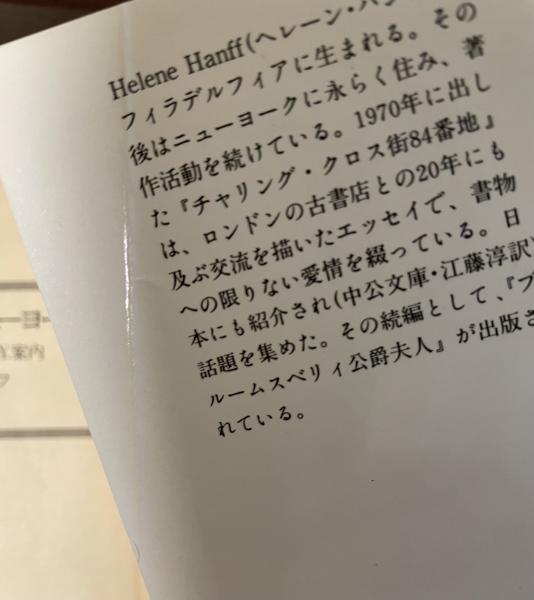 Helene Hanff(ヘレーン・ハン
フィラデルフィアに生まれる。その
後はニューヨークに永らく住み、著
作活動を続けている。1970年に出し
た『チャリング・クロス街84番地』
は、ロンドンの古書店との20年にも
及ぶ交流を描いたエッセイで、書物
への限りない愛情を綴っている。日
本にも紹介され(中公文庫・江藤淳訳)
話題を集めた。その続編として、『ブ
ルームスベリィ公爵夫人』が出版さ
れている。
ューヨー
案内
フ